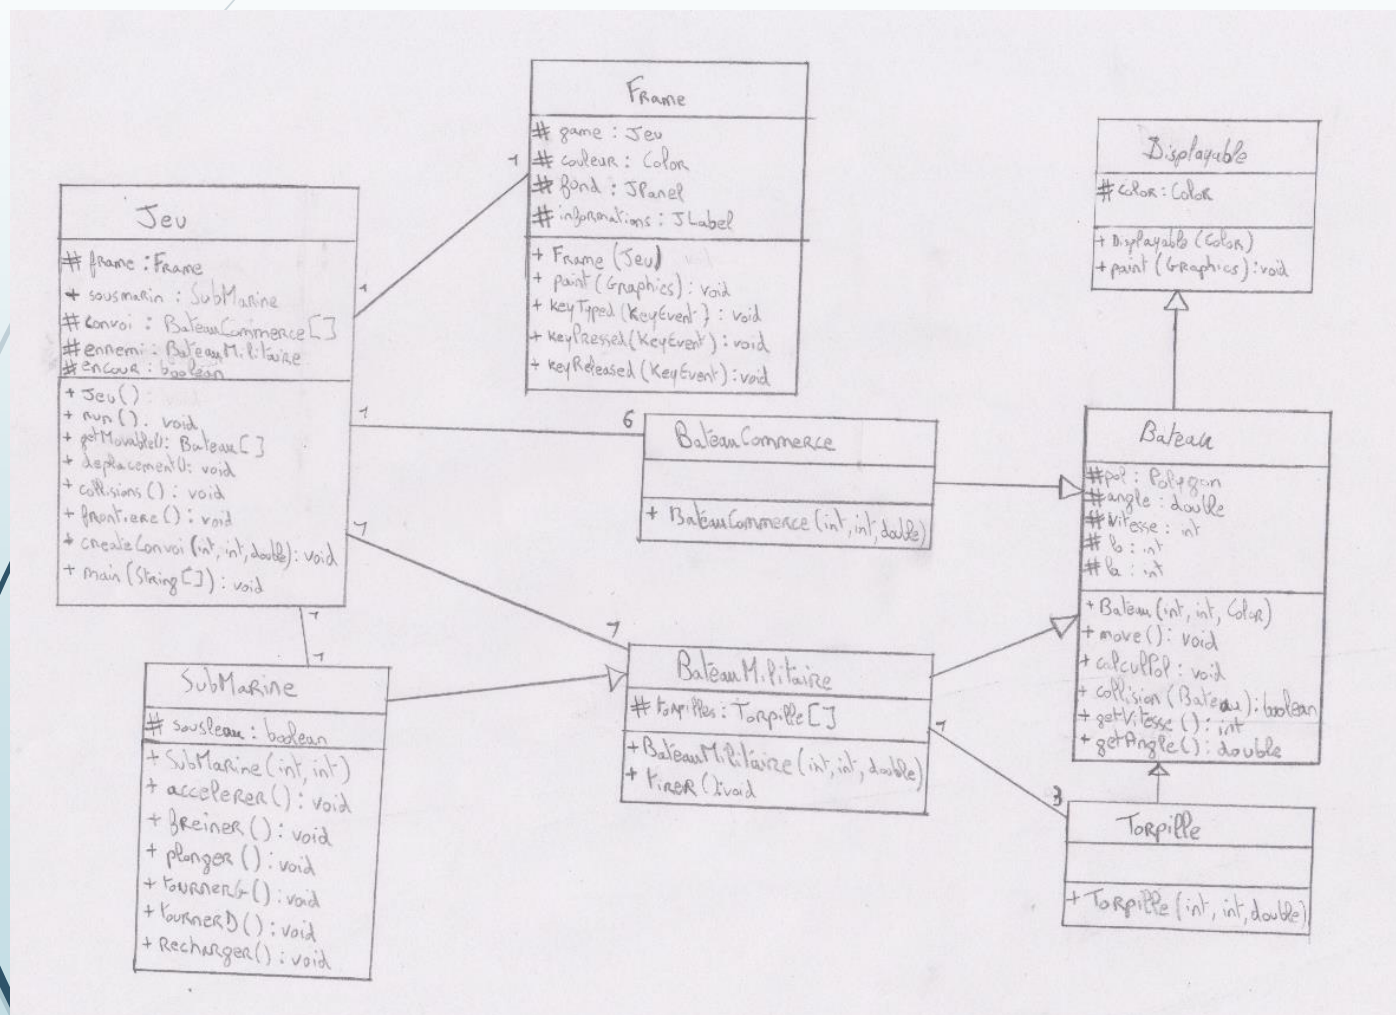 Jeu
# frame : Frame
+ sousmarin : SubMarine
# convoi : BateauCommerce[]
# ennemi : BateauMilitaire
# encour : boolean
+ Jeu()
+ run(): void
+ getMovable(): Bateau[]
+ deplacement(): void
+ collisions() : void
+ frontiere() : void
+ createConvoi(int, int, double): void
+ main(String[]) : void
Frame
# game : Jeu
# couleur : Color
# fond : JPanel
# informations : JLabel
+ Frame (Jeu)
+ paint(Graphics) : void
+ keyTyped(KeyEvent) : void
+ keyPressed(KeyEvent) : void
+ keyReleased(KeyEvent) : void
Displayable
# color : Color
+ Displayable(Color)
+ paint(Graphics) : void
BateauCommerce
+ BateauCommerce(int, int, double)
Bateau
# pol : Polygon
# angle : double
# vitesse : int
# lo : int
# la : int
+ Bateau(int, int, Color)
+ move() : void
+ calculPol : void
+ collision(Bateau) : boolean
+ getVitesse() : int
+ getAngle() : double
SubMarine
# sousleau : boolean
+ SubMarine(int, int)
+ accelerer() : void
+ freiner() : void
+ plonger() : void
+ tournerG() : void
+ tournerD() : void
+ recharger() : void
BateauMilitaire
# torpilles : Torpille[]
+ BateauMilitaire(int, int, double)
+ tirer():void
Torpille
+ Torpille(int, int, double)
1
1
1
6
1
1
1
1
1
3